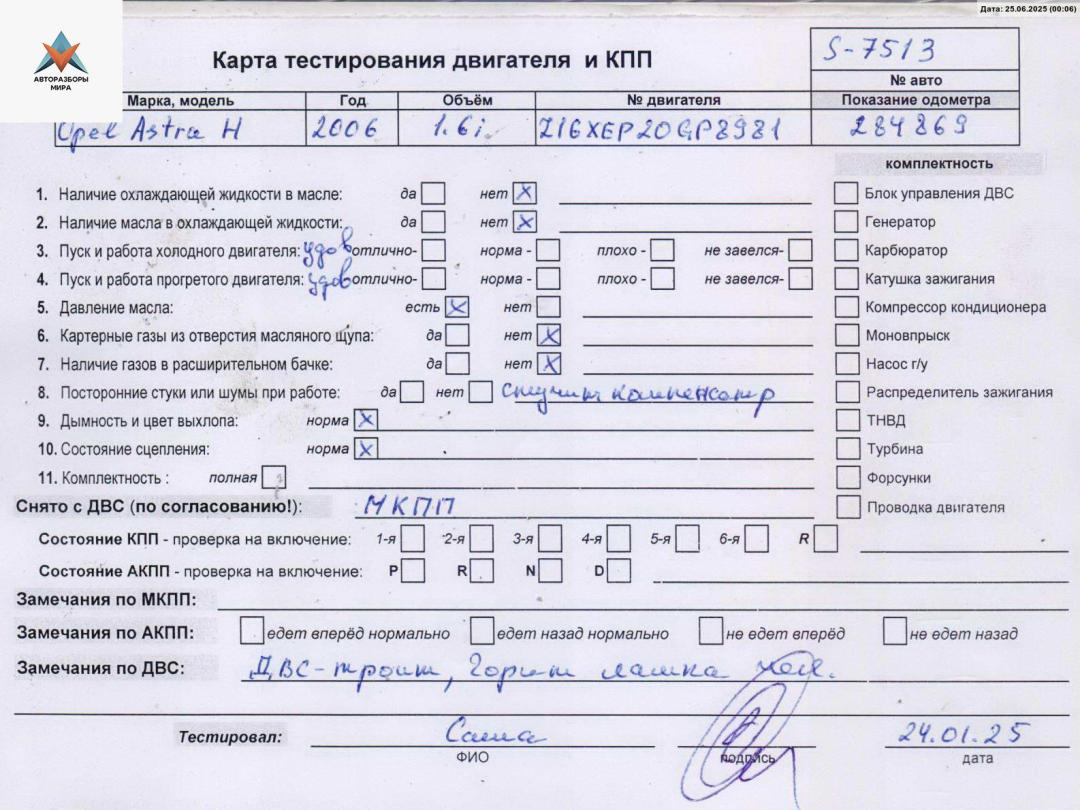 Дата: 25.06.2025 (00:06)
АВТОРАЗБОРЫ
МИРА
Карта тестирования двигателя и КПП
S-7513
№ авто
Марка, модель Год Объём № двигателя Показание одометра
Opel Astra H 2006 1.6i Z16XEP20GP8981 284869
комплектность
1. Наличие охлаждающей жидкости в масле: да нет X Блок управления ДВС
2. Наличие масла в охлаждающей жидкости: да нет X Генератор
3. Пуск и работа холодного двигателя: удов отлично- норма - плохо - не завелся- Карбюратор
4. Пуск и работа прогретого двигателя: удов отлично- норма - плохо - не завелся- Катушка зажигания
5. Давление масла: есть X нет Компрессор кондиционера
6. Картерные газы из отверстия масляного щупа: да нет X Моновпрыск
7. Наличие газов в расширительном бачке: да нет X Насос г/у
8. Посторонние стуки или шумы при работе: да нет стучит компенсатор Распределитель зажигания
9. Дымность и цвет выхлопа: норма X ТНВД
10. Состояние сцепления: норма X Турбина
11. Комплектность : полная Форсунки
Снято с ДВС (по согласованию!): МКПП Проводка двигателя
Состояние КПП - проверка на включение: 1-я 2-я 3-я 4-я 5-я 6-я R
Состояние АКПП - проверка на включение: P R N D
Замечания по МКПП:
Замечания по АКПП: едет вперёд нормально едет назад нормально не едет вперёд не едет назад
Замечания по ДВС: ДВС-троит, Горит лампа
Тестировал: Саша 24.01.25
ФИО подпись дата